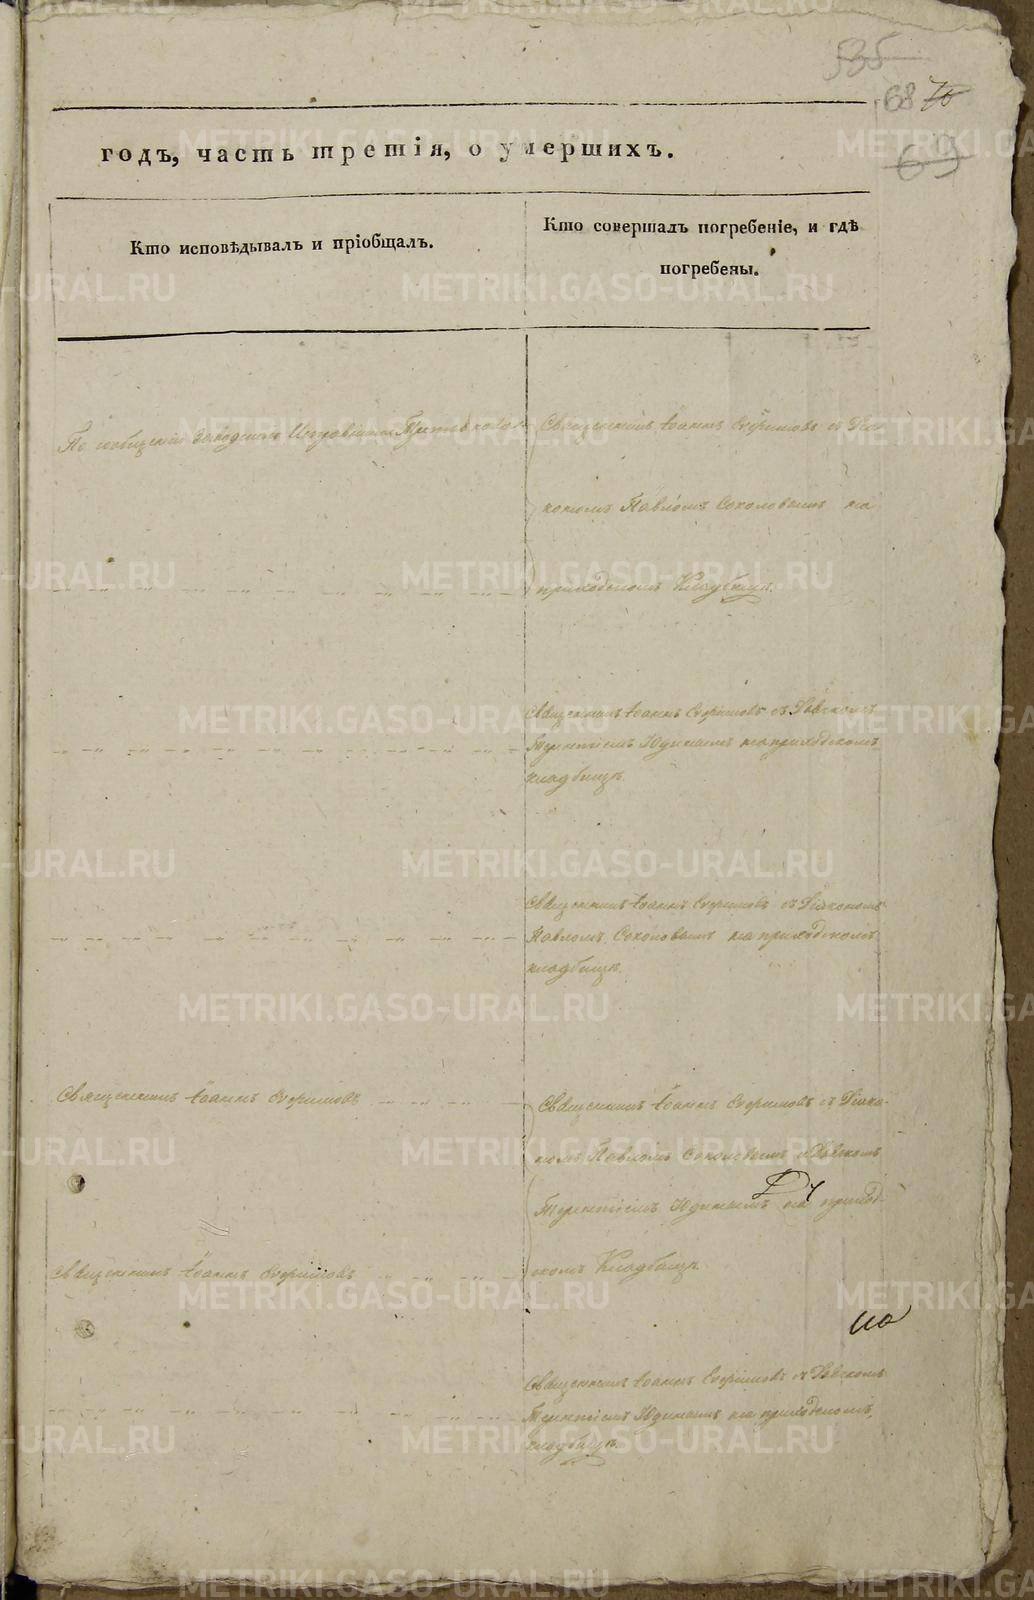 535
68 70
69
годъ, часть третія, о умершихъ.
Кто исповѣдывалъ и пріобщалъ.
Кто совершалъ погребеніе, и гдѣ
погребены.
По сообщенію Заводскаго Исправника
Священникъ Іоаннъ Ефимовъ съ Діа-
кономъ Павломъ Соколовымъ на
приходскомъ Кладбищѣ.
Священникъ Іоаннъ Ефимовъ съ Дьячкомъ
Терентіемъ Юдинымъ на приходскомъ
кладбищѣ.
Священникъ Іоаннъ Ефимовъ съ Діакономъ
Павломъ Соколовымъ на приходскомъ
кладбищѣ.
Священникъ Іоаннъ Ефимовъ
Священникъ Іоаннъ Ефимовъ съ Діако-
номъ Павломъ Соколовымъ и Дьячкомъ
Терентіемъ Юдинымъ на приход-
скомъ Кладбищѣ.
Священникъ Іоаннъ Ефимовъ
Священникъ Іоаннъ Ефимовъ съ Дьячкомъ
Терентіемъ Юдинымъ на приходскомъ
кладбищѣ.
METRIKI.GASO-URAL.RU